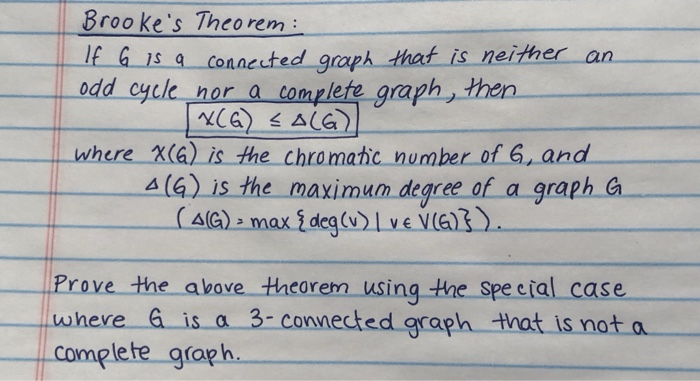 Brooke's Theorem:
If G is a connected graph that is neither an
odd cycle nor a complete graph, then
χ(G) ≤ Δ(G)
where χ(G) is the chromatic number of G, and
Δ(G) is the maximum degree of a graph G
(Δ(G) = max {deg(v) | v ∈ V(G)}).
Prove the above theorem using the special case
where G is a 3-connected graph that is not a
complete graph.